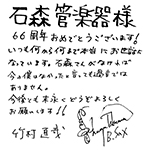 石森管楽器様
66周年おめでとうございます!
いつも何から何まで本当にお世話に
なっています。石森さんがなければ
今の僕はなかったと言っても過言では
ありません。
今後とも末永くどうぞよろしく
お願いします!!
竹村直哉
B.Sax